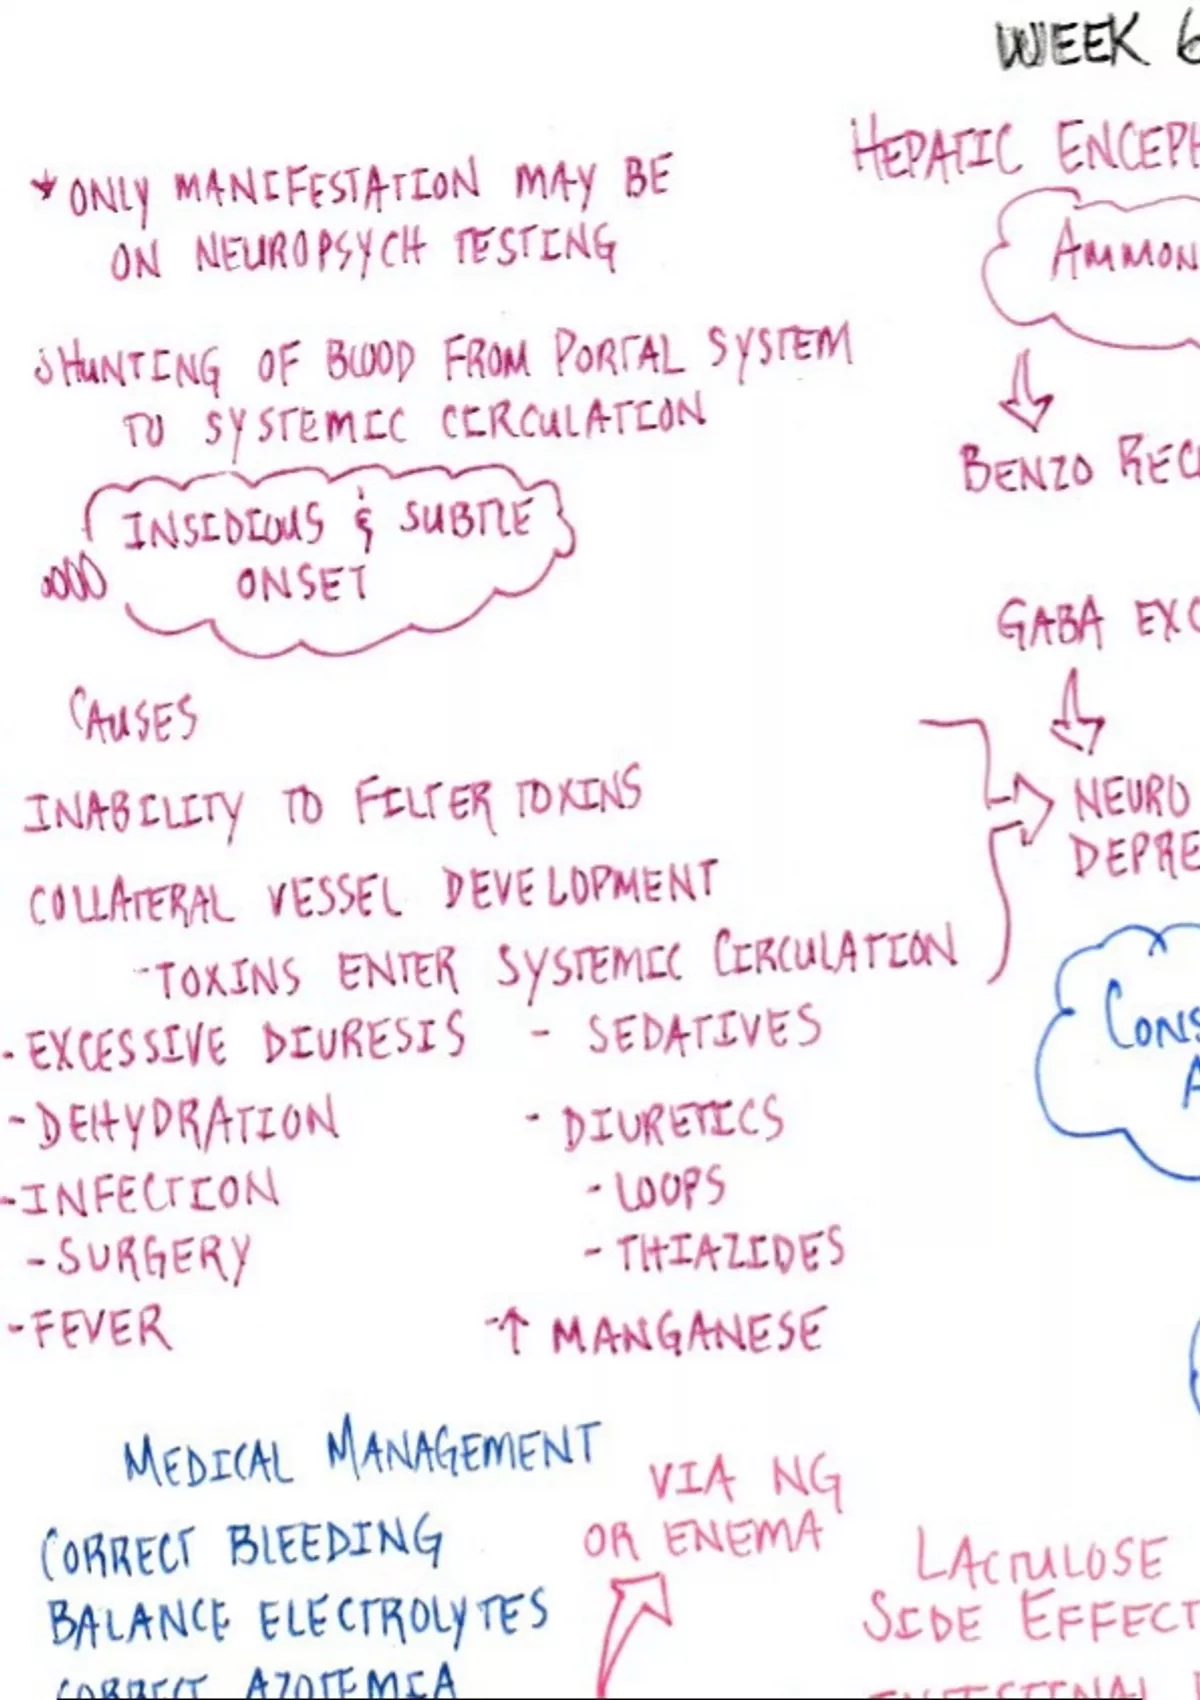 WEEK 6
HEPATIC ENCEPH
AMMON
BENZO REC
GABA EXC
NEURO
DEPRE
* ONLY MANIFESTATION MAY BE
ON NEUROPSYCH TESTING
SHUNTING OF BLOOD FROM PORTAL SYSTEM
TO SYSTEMIC CIRCULATION
INSIDIOUS & SUBTLE
ONSET
CAUSES
INABILITY TO FILTER TOXINS
COLLATERAL VESSEL DEVELOPMENT
- TOXINS ENTER SYSTEMIC CIRCULATION
- EXCESSIVE DIURESIS
- DEHYDRATION
- INFECTION
- SURGERY
- FEVER
- SEDATIVES
- DIURETICS
- LOOPS
- THIAZIDES
- ↑ MANGANESE
CONS
A
MEDICAL MANAGEMENT
CORRECT BLEEDING
BALANCE ELECTROLYTES
CORRECT AZOTEMIA
VIA NG
OR ENEMA
LACTULOSE
SIDE EFFECT
INTESTINAL